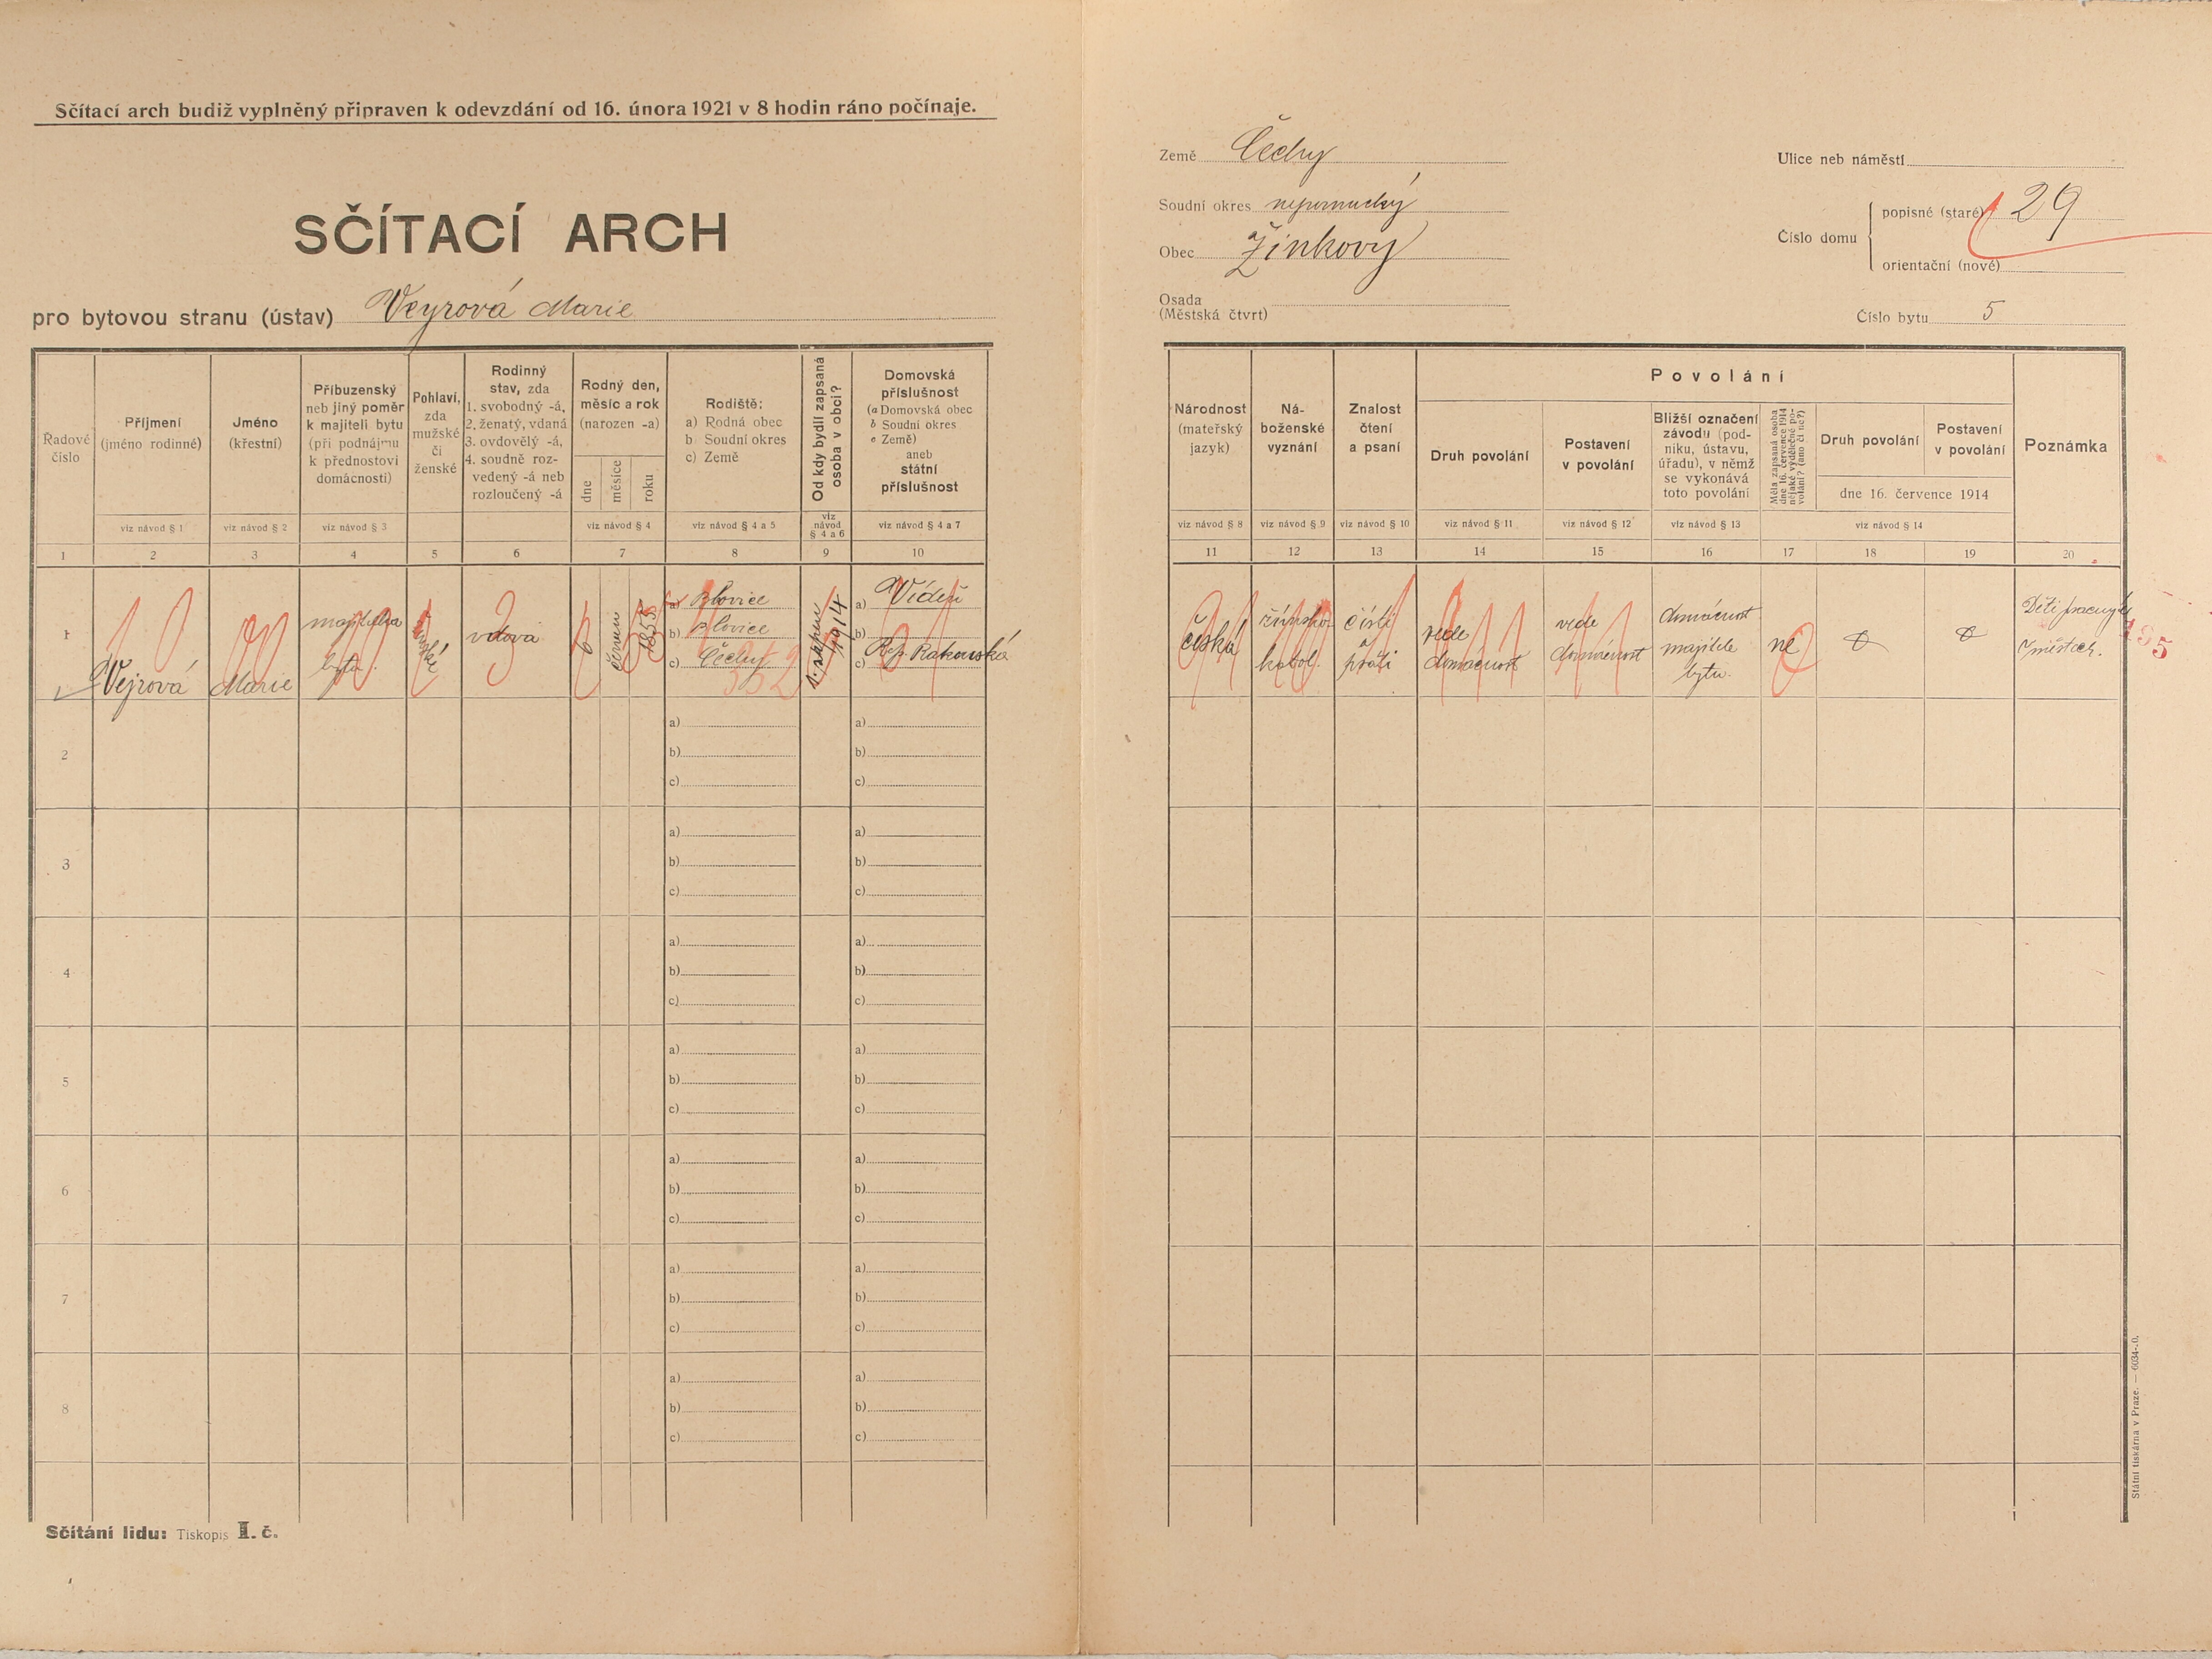 Sčítací arch budiž vyplněný připraven k odevzdání od 16. února 1921 v 8 hodin ráno počínaje.
SČÍTACÍ ARCH
pro bytovou stranu (ústav) Veyrová Marie
Země Čechy
Soudní okres nepomucký
Obec Žinkovy
Osada
(Městská čtvrť)
Ulice neb náměstí
Číslo domu
popisné (staré) 29
orientační (nové)
Číslo bytu 5
Řadové
číslo
Příjmení
(jméno rodinné)
Jméno
(křestní)
Příbuzenský
neb jiný poměr
k majiteli bytu
(při podnájmu
k přednostovi
domácnosti)
Pohlaví,
zda
mužské
či
ženské
Rodinný
stav, zda
1. svobodný -á,
2. ženatý, vdaná
3. ovdovělý -á,
4. soudně roz-
vedený -á neb
rozloučený -á
Rodný den,
měsíc a rok
(narozen -a)
dne
měsíce
roku
Rodiště:
a) Rodná obec
b) Soudní okres
c) Země
Od kdy bydlí zapsaná
osoba v obci?
Domovská
příslušnost
(a Domovská obec
b Soudní okres
c Země)
aneb
státní
příslušnost
viz návod § 1
viz návod § 2
viz návod § 3
viz návod § 4
viz návod § 4 a 5
viz
návod
§ 4 a 6
viz návod § 4 a 7
1 2 3 4 5 6 7 8 9 10
Národnost
(mateřský
jazyk)
Ná-
boženské
vyznání
Znalost
čtení
a psaní
Povolání
Druh povolání
Postavení
v povolání
Bližší označení
závodu (pod-
niku, ústavu,
úřadu), v němž
se vykonává
toto povolání
Měla zapsaná osoba
dne 16. července 1914
nějaké výdělečné po-
volání? (ano či ne?)
Druh povolání
Postavení
v povolání
dne 16. července 1914
Poznámka
viz návod § 8
viz návod § 9
viz návod § 10
viz návod § 11
viz návod § 12
viz návod § 13
viz návod § 14
11 12 13 14 15 16 17 18 19 20
1
Vejrová
Marie
majitelka
bytu
ženské
vdova
6
červen
1855
a) Blovice
b) Blovice
c) Čechy
352
1. srpen
1914
a) Vídeň
b)
c) Rep. Rakouská
česká
římsko
katol.
čísti
a
psáti
vede
domácnost
vede
domácnost
domácnost
majitele
bytu.
ne
Děti pracují
v městech.
2
a)
b)
c)
a)
b)
c)
3
a)
b)
c)
a)
b)
c)
4
a)
b)
c)
a)
b)
c)
5
a)
b)
c)
a)
b)
c)
6
a)
b)
c)
a)
b)
c)
7
a)
b)
c)
a)
b)
c)
8
a)
b)
c)
a)
b)
c)
Sčítání lidu: Tiskopis I. č.
Státní tiskárna v Praze. — 6034-20.